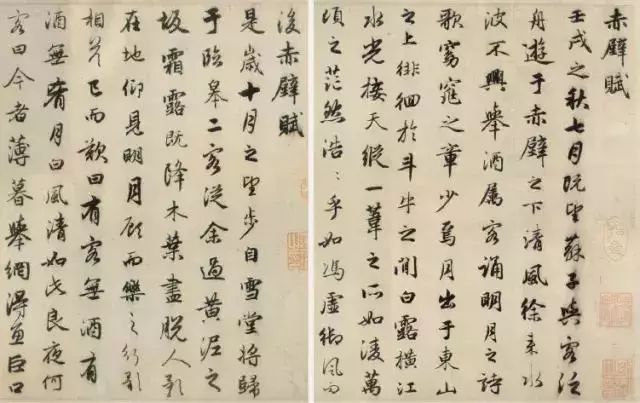 赤壁賦
壬戌之秋七月既望蘇子與客泛
舟遊于赤壁之下清風徐來水
波不興舉酒属客誦明月之詩
歌窈窕之章少焉月出于東山
之上徘徊於斗牛之間白露橫江
水光接天縱一葦之所如凌萬
頃之茫然浩〻乎如馮虛御風而
後赤壁賦
是歲十月之望步自雪堂將歸
于臨皋二客從余過黃泥之
坂霜露既降木葉盡脫人影
在地仰見明月顧而樂之行歌
相答已而歎曰有客無酒有
酒無肴月白風清如此良夜何
客曰今者薄暮舉網得魚巨口